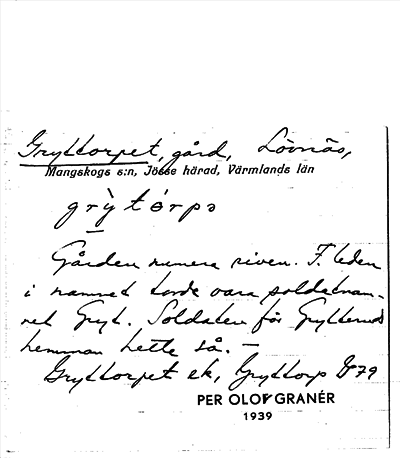 Gryttorpet, gård, Lövnäs,
Mangskogs s:n, Jösse härad, Värmlands län
grỳtórpə
Gården numera riven. F. leden
i namnet torde vara soldatnam-
net Gryt. Soldaten för Grytternds
hemman hette så. –
Gryttorpet ek, Gryttorp 79
PER OLOF GRANÉR
1939